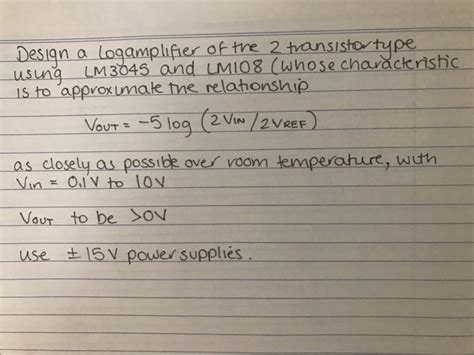 Design a logamplifier of the 2 transistor type
using LM3045 and LM108 (whose characteristic
is to approximate the relationship
VOUT = -5 log (2VIN / 2VREF)
as closely as possible over room temperature, with
Vin = 0.1V to 10V
VOUT to be >0V
use ± 15V power supplies.